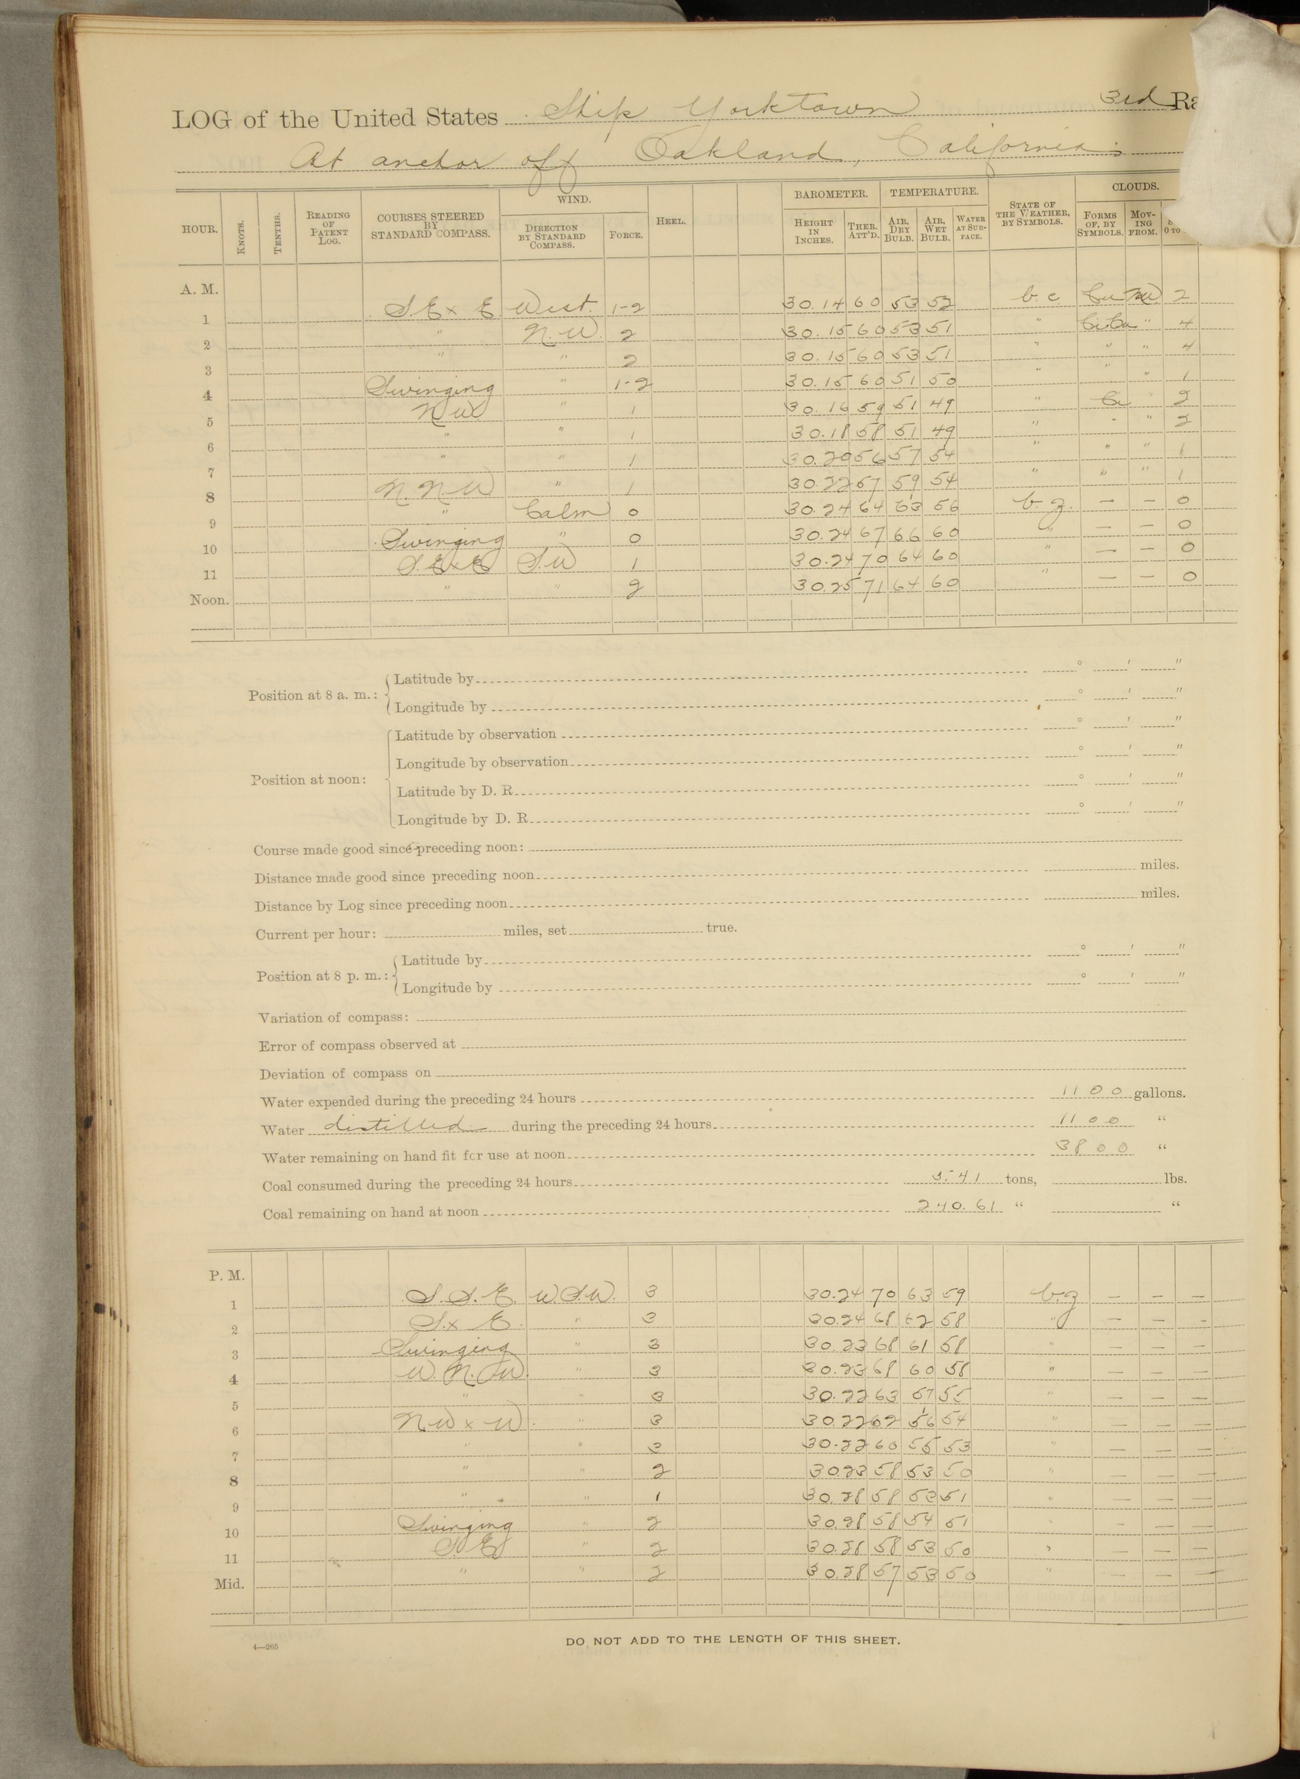 LOG of the United States Ship Yorktown 3rd Ra
At anchor off Oakland, California
HOUR. KNOTS. TENTHS. READING OF PATENT LOG. COURSES STEERED BY STANDARD COMPASS. WIND. DIRECTION BY STANDARD COMPASS. FORCE. HEEL. BAROMETER. HEIGHT IN INCHES. THER. ATT'D. TEMPERATURE. AIR, DRY BULB. AIR, WET BULB. WATER AT SURFACE. STATE OF THE WEATHER, BY SYMBOLS. CLOUDS. FORMS OF, BY SYMBOLS. MOVING FROM. 0 TO
A. M.
1 S.E x E West. 1-2 30.14 60 53 52 b.c Cu NW 2
2 " N.W. 2 30.15 60 53 51 " Ci.Cu " 4
3 " " 2 30.15 60 53 51 " " " 4
4 Swinging " 1-2 30.15 60 51 50 " " " 1
5 NW " 1 30.16 59 51 49 " Ci " 2
6 " " 1 30.18 58 51 49 " " " 2
7 " " 1 30.20 56 57 54 " " " 1
8 N.N.W " 1 30.22 57 59 54 " " " 1
9 " Calm 0 30.24 64 63 56 b.z. — — 0
10 Swinging " 0 30.24 67 66 60 " — — 0
11 S.ExE S.W 1 30.24 70 64 60 " — — 0
Noon. " " 2 30.25 71 64 60 " — — 0
Position at 8 a. m.: Latitude by ° ' "
Longitude by ° ' "
Position at noon: Latitude by observation ° ' "
Longitude by observation ° ' "
Latitude by D. R. ° ' "
Longitude by D. R. ° ' "
Course made good since preceding noon:
Distance made good since preceding noon miles.
Distance by Log since preceding noon miles.
Current per hour: miles, set true.
Position at 8 p. m.: Latitude by ° ' "
Longitude by ° ' "
Variation of compass:
Error of compass observed at
Deviation of compass on
Water expended during the preceding 24 hours 1100 gallons.
Water distilled during the preceding 24 hours 1100 "
Water remaining on hand fit for use at noon 3800 "
Coal consumed during the preceding 24 hours 5.41 tons, lbs.
Coal remaining on hand at noon 240.61 " "
P. M.
1 S.S.E. W.S.W. 3 30.24 70 63 59 b.z — — —
2 S. x E. " 3 30.24 68 62 58 " — — —
3 Swinging " 3 30.23 68 61 58 " — — —
4 W.N.W. " 3 30.23 68 60 58 " — — —
5 " " 3 30.22 63 57 55 " — — —
6 NW x W. " 3 30.22 62 56 54 " — — —
7 " " 3 30.22 60 55 53 " — — —
8 " " 2 30.23 58 53 50 " — — —
9 " " 1 30.28 58 53 51 " — — —
10 Swinging " 2 30.28 58 54 51 " — — —
11 S.E " 2 30.28 58 53 50 " — — —
Mid. " " 2 30.28 57 53 50 " — — —
4—265
DO NOT ADD TO THE LENGTH OF THIS SHEET.